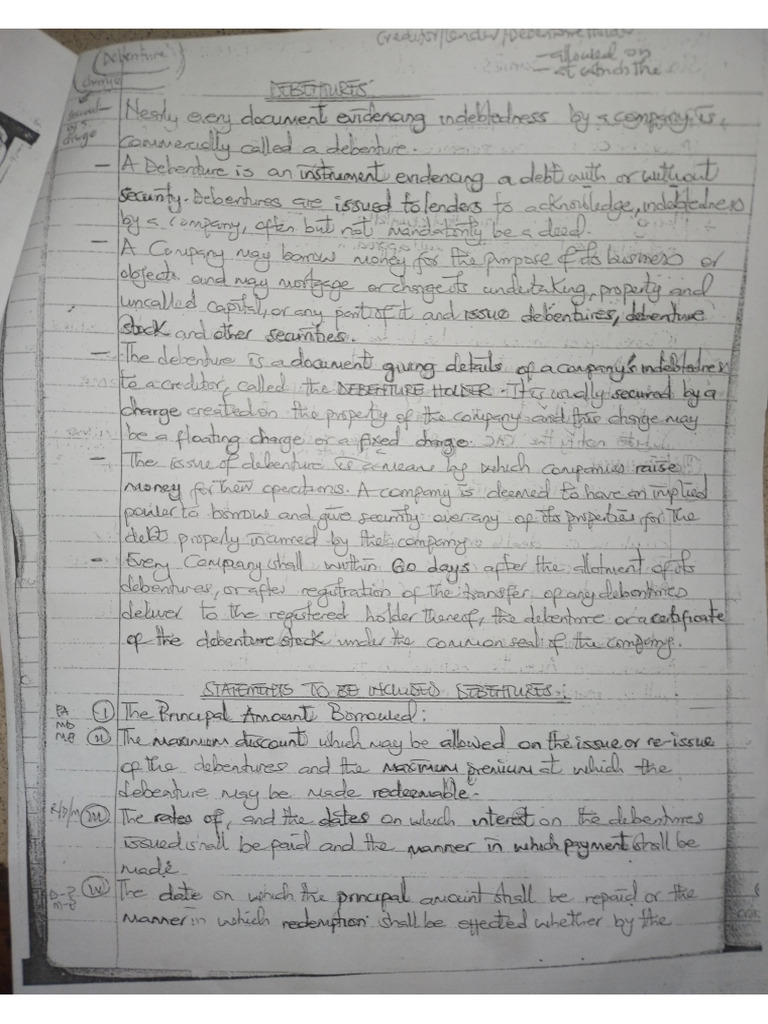 Creditor/Lender/Debenture Holder
(Debenture)
- allowed on
- at which the
charge
DEBENTURES:
Nearly every document evidencing indebtedness by a company is,
commercially called a debenture.
- A Debenture is an instrument evidencing a debt with or without
security. Debentures are issued to lenders to acknowledge, indebtedness
by a company, often but not mandatorily be a deed.
- A Company may borrow money for the purpose of its business or
objects and may mortgage or charge its undertaking, property and
uncalled capital, or any part of it and issue debentures, debenture
stock and other securities.
- The debenture is a document giving details of a company's indebtedness
to a creditor, called the DEBENTURE HOLDER. It is usually secured by a
charge created on the property of the company and this charge may
be a floating charge or a fixed charge.
- The issue of debenture is a means by which companies raise
money for their operations. A company is deemed to have an implied
power to borrow and give security over any of its properties for the
debt properly incurred by the company.
- Every Company shall within 60 days after the allotment of its
debentures, or after registration of the transfer of any debentures
deliver to the registered holder thereof, the debenture or a certificate
of the debenture stock under the common seal of the company.
STATEMENTS TO BE INCLUDED DEBENTURES:
PA (i) The Principal Amount Borrowed:
MD
MP (ii) The maximum discount which may be allowed on the issue or re-issue
of the debentures and the maximum premium at which the
debenture may be made redeemable.
R/D/M (iii) The rates of, and the dates on which interest on the debentures
issued shall be paid and the manner in which payment shall be
made.
(iv) The date on which the principal amount shall be repaid or the
manner in which redemption shall be effected whether by the